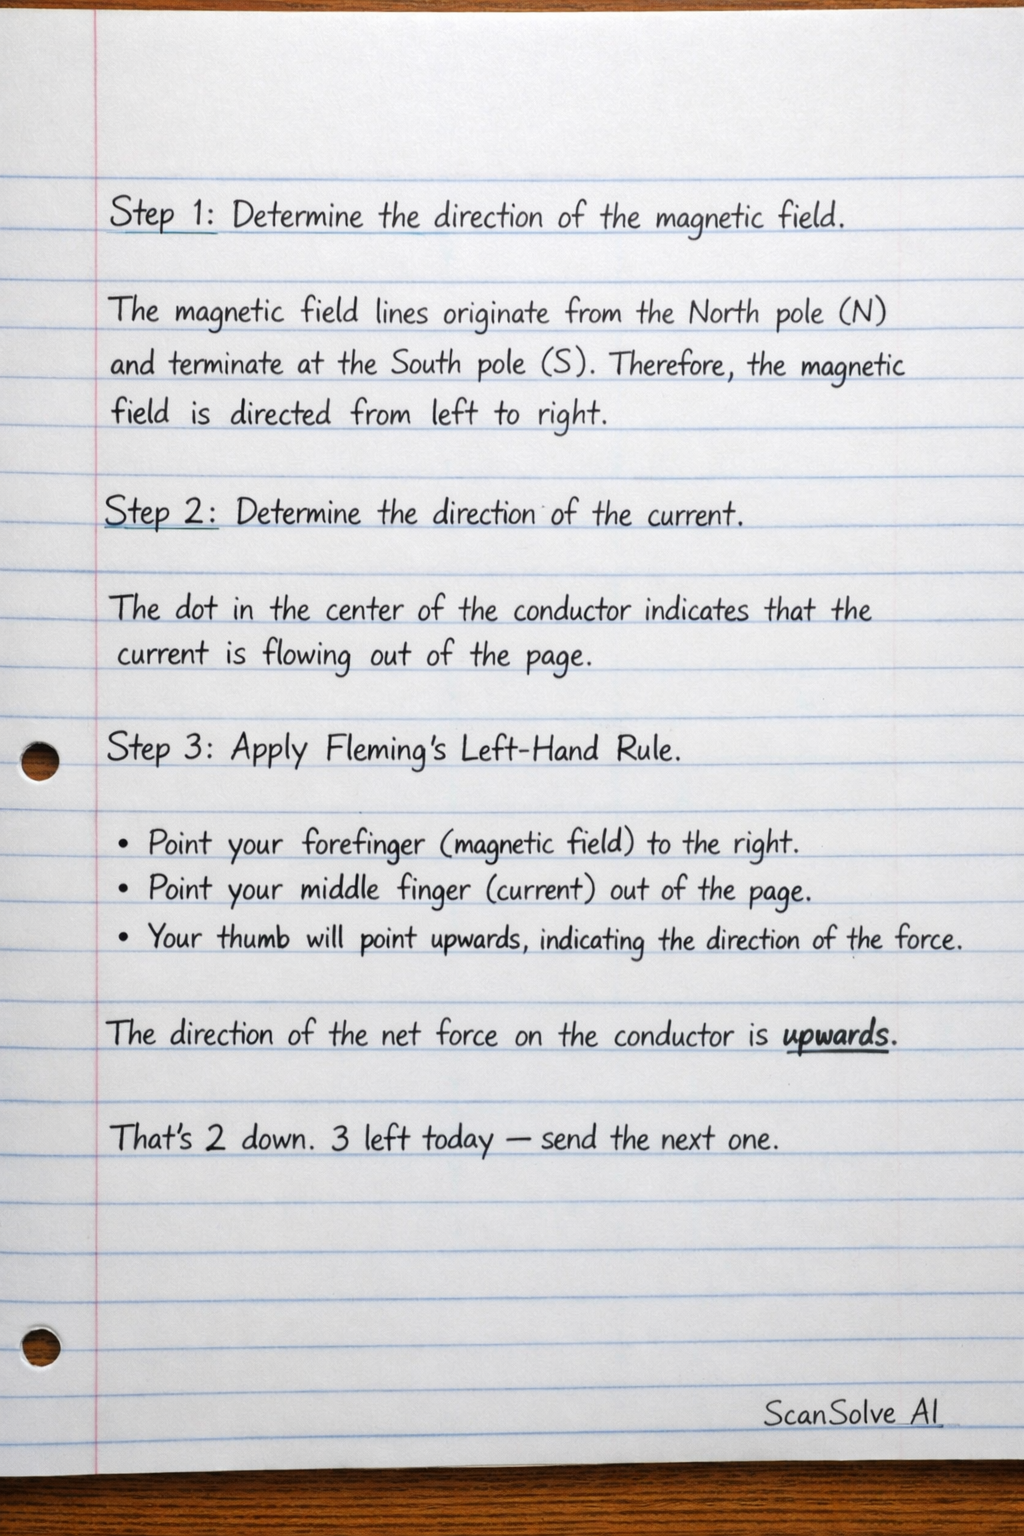 Step 1: Determine the direction of the magnetic field.
The magnetic field lines originate from the North pole (N)
and terminate at the South pole (S). Therefore, the magnetic
field is directed from left to right.
Step 2: Determine the direction of the current.
The dot in the center of the conductor indicates that the
current is flowing out of the page.
Step 3: Apply Fleming's Left-Hand Rule.
• Point your forefinger (magnetic field) to the right.
• Point your middle finger (current) out of the page.
• Your thumb will point upwards, indicating the direction of the force.
The direction of the net force on the conductor is upwards.
That's 2 down. 3 left today — send the next one.
ScanSolve AI